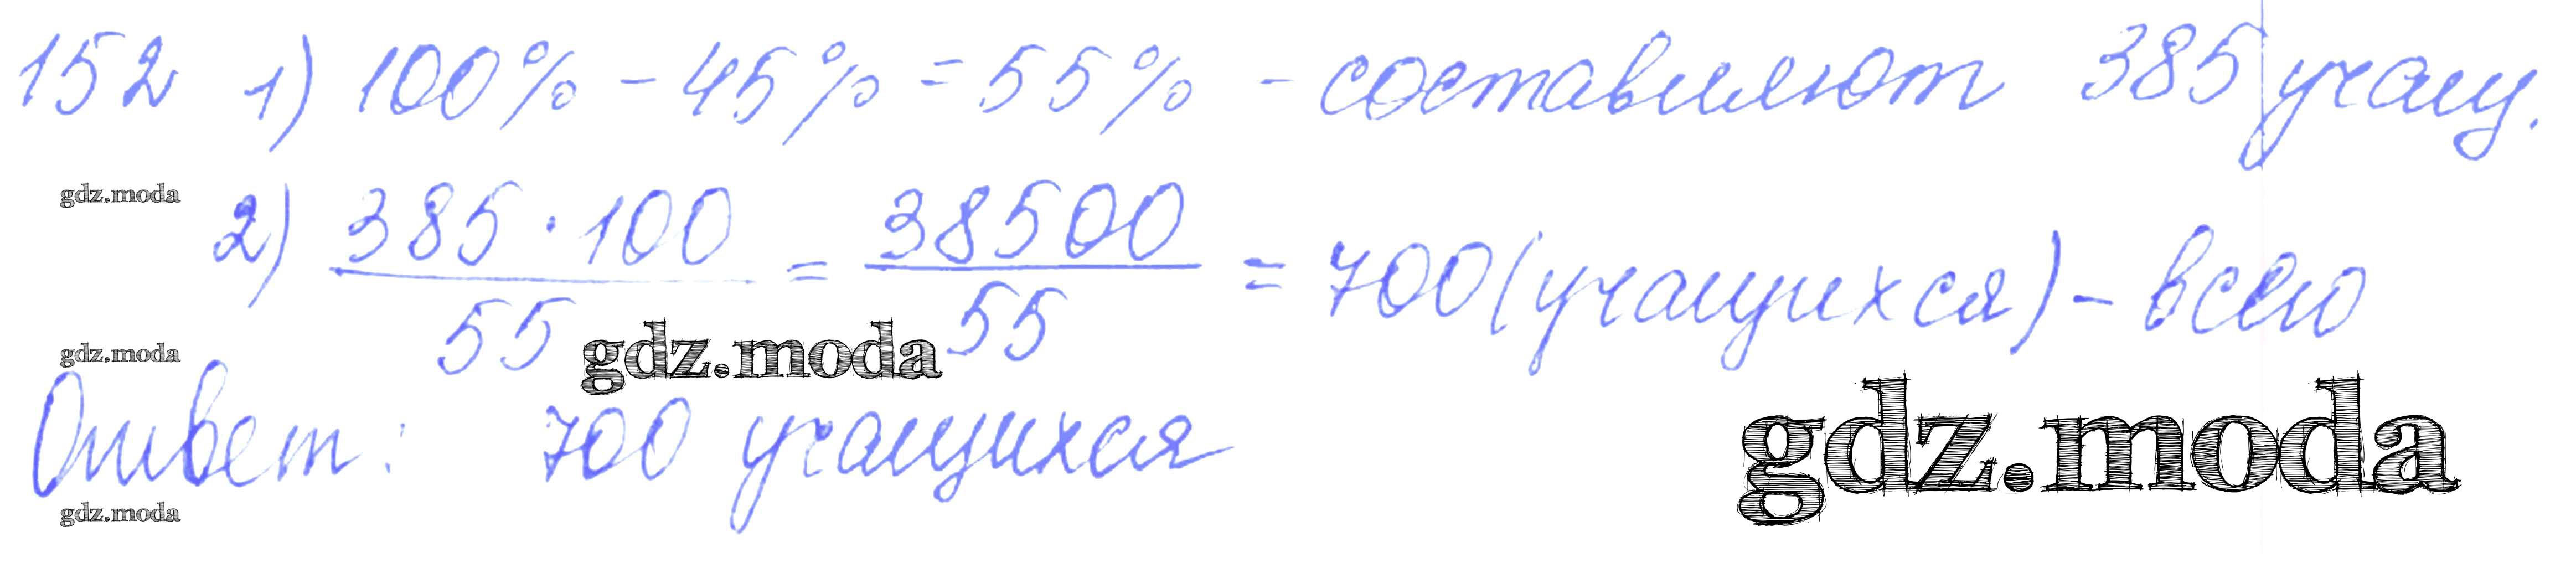 152 1) 100% - 45% = 55% - составляют 385 учащ.
gdz.moda
2) 385·100/55 = 38500/55 = 700 (учащихся) - всего
gdz.moda
gdz.moda
Ответ: 700 учащихся
gdz.moda
gdz.moda